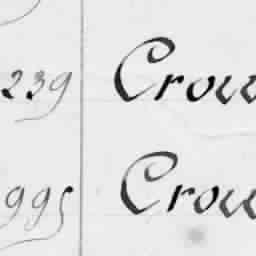 239 Crow
995 Crow